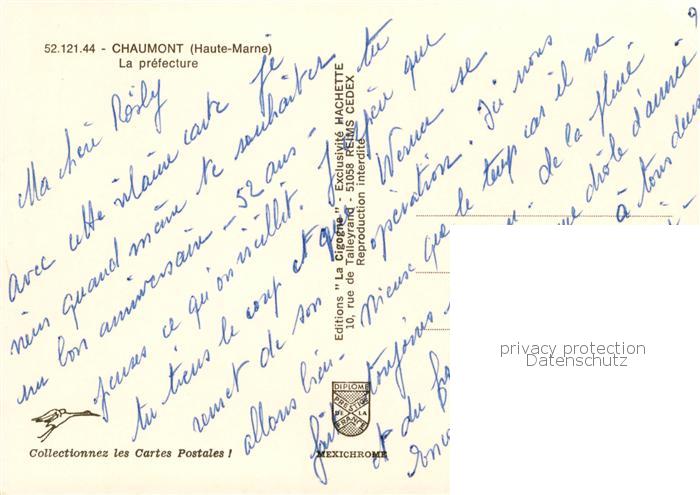 52.121.44 - CHAUMONT (Haute-Marne)
La préfecture
Ma chère Rösly
avec cette vilaine carte je
viens quand même te souhaiter
un bon anniversaire - 52 ans - tu
penses ce qu'on vieillit. J'espère que
tu tiens le coup et que Werner se
remet de son opération. Ici nous
allons bien - mieux que le temps car il ne
fait toujours de la pluie
et du drôle d'année
à tous deux
Editions " La Cigogne " - Exclusivité HACHETTE
10, rue de Talleyrand - 51058 REIMS CEDEX
Reproduction interdite
DIPLOME
PRESTIGE
DE LA
FRANCE
MEXICHROME
Collectionnez les Cartes Postales !
privacy protection
Datenschutz